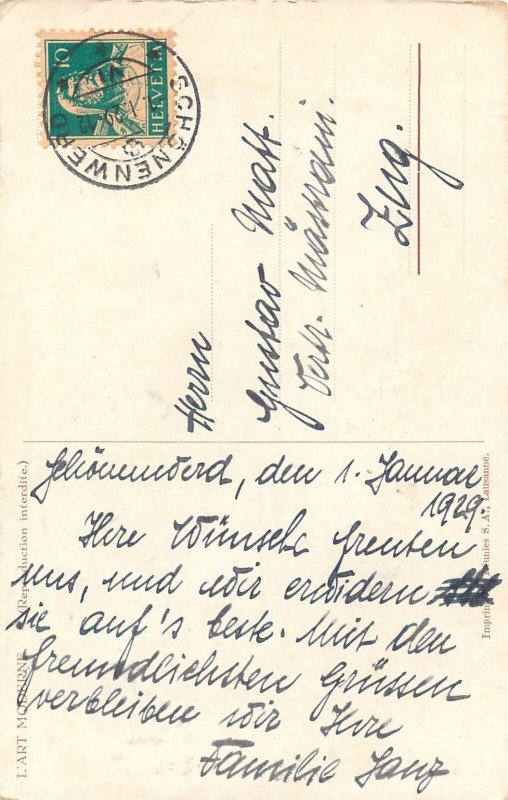 10
HELVETIA
SCHÖNENWERD
Herrn
Gustav Matt.
Vertr.
Zug.
Schönenwerd, den 1. Januar
1929.
Ihre Wünsche freuten
uns, und wir erwidern
sie auf's beste. Mit den
freundlichsten Grüssen
verbleiben wir Ihre
Familie
L'ART MODERNE
(Reproduction interdite.)
Réunies S. A., Lausanne.